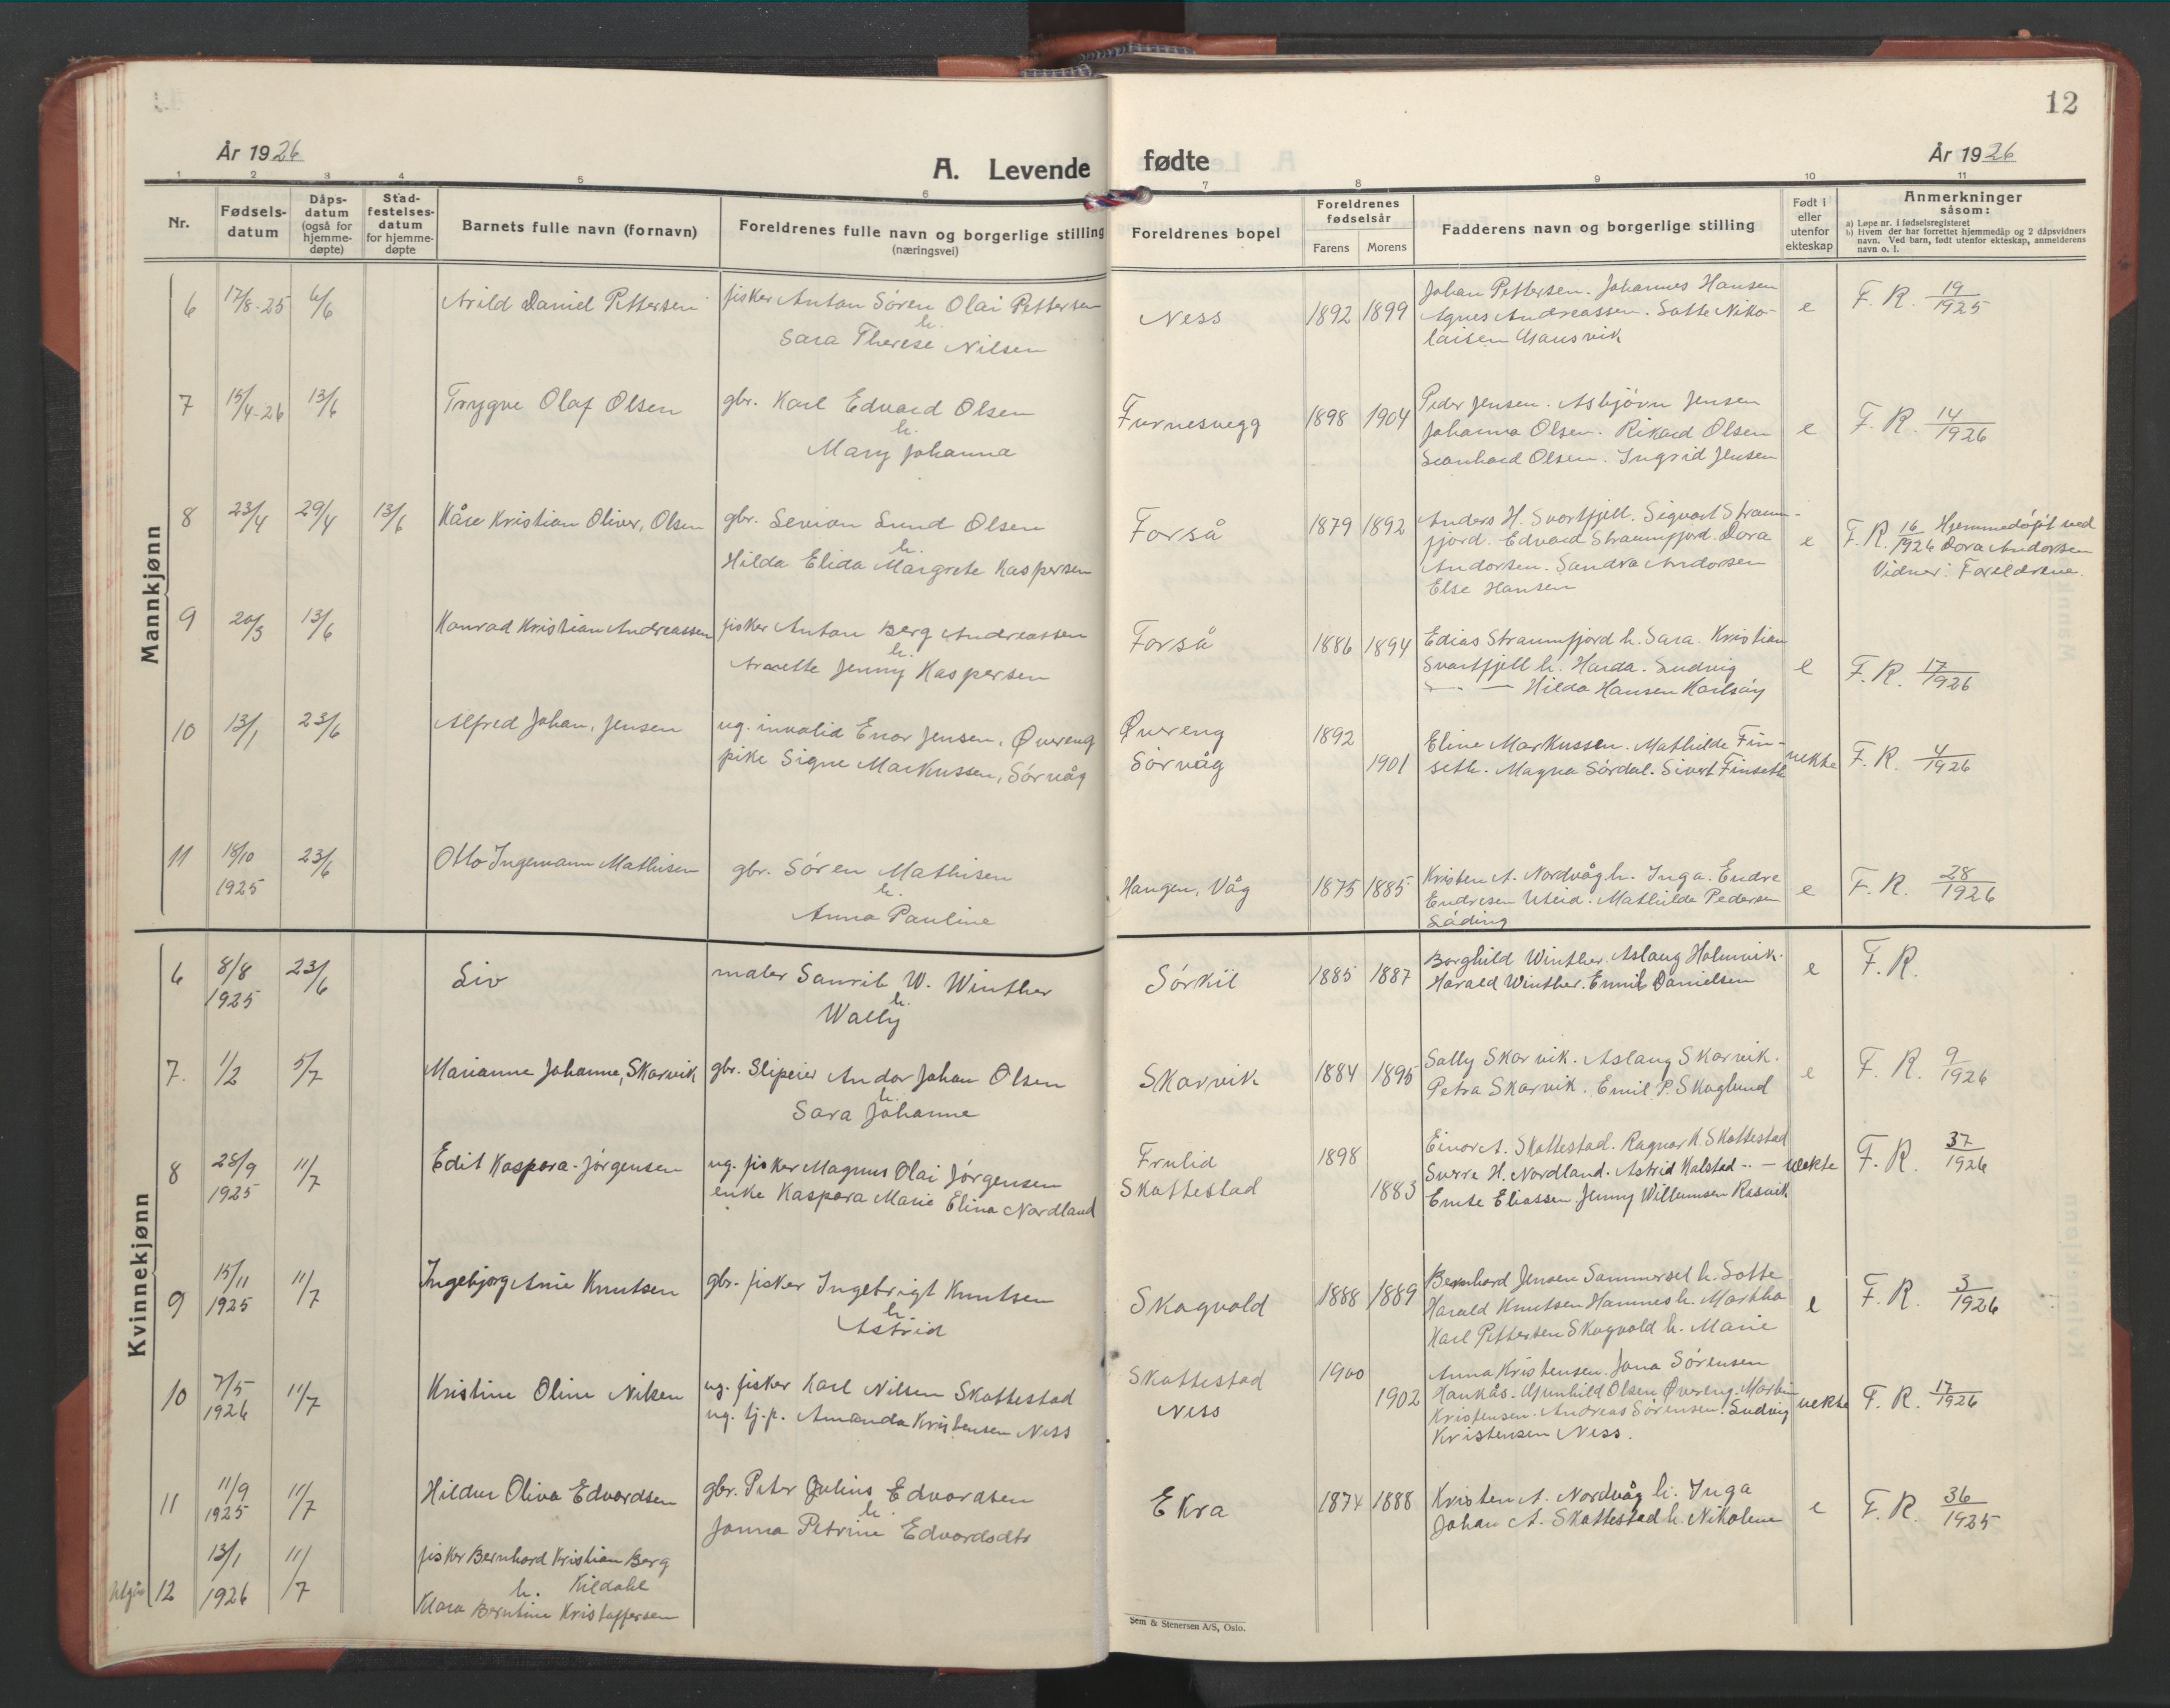 12
År 1926
A. Levende fødte
År 1926
1 2 3 4 5 6 7 8 9 10 11
Nr.
Fødsels-
datum
Dåps-
datum
(også for
hjemme-
døpte)
Stad-
festelses-
datum
for hjemme-
døpte
Barnets fulle navn (fornavn)
Foreldrenes fulle navn og borgerlige stilling
(næringsvei)
Foreldrenes bopel
Foreldrenes
fødselsår
Farens Morens
Fadderens navn og borgerlige stilling
Født i
eller
utenfor
ekteskap
Anmerkninger
såsom:
a) Løpe nr. i fødselsregisteret
b) Hvem der har forrettet hjemmedåp og 2 dåpsvidners
navn. Ved barn, født utenfor ekteskap, anmelderens
navn o. l.
Mannkjønn
6 17/8-25 6/6 Arild Daniel Pettersen
fisker Anton Sören Olai Pettersen
h.
Sara Therese Nilsen
Ness 1892 1899
Johan Pettersen. Johannes Hansen
Agnes Andreassen. Lotte Niko-
laisen
e F. R. 19/1925
7 15/4-26 13/6 Trygve Olaf Olsen
gbr. Karl Edvard Olsen
h.
Mary Johanna
Furnesvegg 1898 1904
Peder Jensen. Asbjörn Jensen
Johanna Olsen. Rikard Olsen
Leonhard Olsen. Ingrid Jensen
e F. R. 14/1926
8 23/4 29/4 13/6 Kåre Kristian Oliver, Olsen
gbr. Sevion Lund Olsen
h.
Hilda Elida Margrete Kaspersen
Forså 1879 1892
Anders H. Svartfjell. Sigvart Straum-
fjord. Edvard Straumfjord. Dora
Andorsen. Sandra Andorsen
Else Hansen
e F. R. 16/1926 Hjemmedöpt ved
Dora Andorsen
Vidner: Foreldrene.
9 20/3 13/6 Konrad Kristian Andreassen
fisker Anton Berg Andreassen
h.
Jenny Kaspersen
Forså 1886 1894
Edias Straumfjord h. Sara. Kristian
Svartfjell h. Harda. Ludvig
— Hilda Hansen Karlsöy
e F. R. 17/1926
10 13/1 23/6 Alfred Johan, Jensen
ug. invalid Enor Jensen, Övereng
pike Signe Markussen, Sörvåg
Övereng 1892
Sörvåg 1901
Eline Markussen. Mathilde Fin-
seth. Magna Sördal. Sivert Finseth
uekte F. R. 4/1926
11 18/10 1925 23/6 Otto Ingemann Mathisen
gbr. Sören Mathisen
h.
Anna Pauline
Haugen, Våg 1875 1885
Kristen A. Nordvåg h. Inga. Endre
Endresen Uteid. Mathilde Pedersen
Löding
e F. R. 28/1926
Kvinnekjønn
6 8/8 1925 23/6 Liv
maler W. Winther
h.
Wally
Sörkil 1885 1887
Borghild Winther. Aslaug Holmvik.
Harald Winther. Emil Danielsen
e F. R.
7. 1/2 5/7 Marianne Johanne, Skarvik
gbr. Andor Johan Olsen
h.
Sara Johanne
Skarvik 1884 1895
Sally Skarvik. Aslaug Skarvik.
Petra Skarvik. Emil P. Skoglund
e F. R. 9/1926
8 28/9 1925 11/7 Edit Kaspara Jörgensen
ug. fisker Magnus Olai Jörgensen
enke Kaspara Marie Elina Nordland
Frulid 1898
Skottestad 1883
Einar A. Skottestad. Ragnar K. Skottestad
Sverre H. Nordland. Astrid Kalstad -"-
Emte Eliassen. Jenny Willumsen Rasvik
uekte F. R. 37/1926
9 15/11 1925 11/7 Ingebjorg Anie Knutsen
gbr. fisker Ingebrigt Knutsen
h.
Astrid
Skogvold 1888 1889
Bernhard Jensen Sommerset h. Lotte
Harald Knutsen Hamnes h. Martha
Karl Pettersen Skogvold h. Marie
e F. R. 3/1926
10 7/5 1926 11/7 Kristine Oline Nilsen
ug. fisker Karl Nilsen Skottestad
ug. tj.p. Amanda Kristensen Ness
Skottestad 1900
Ness 1902
Anna Kristensen. Jona Sörensen
Haukås. Gunhild Olsen Övereng. Martin
Kristensen. Andreas Sörensen. Ludvig
Kristensen Ness.
uekte F. R. 17/1926
11 11/9 1925 11/7 Hildur Oliva Edvardsen
gbr. Peter Julius Edvardsen
h.
Janna Petrine Edvardsdtr
Ekra 1874 1888
Kristen A. Nordvåg h. Inga
Johan A. Skottestad h. Nikoline
e F. R. 36/1925
Utgår 12 13/1 1926 11/7
fisker Bernhard Kristian Berg
h. Kildahl
Klara Berntine Kristoffersen
Sem & Stenersen A/S, Oslo.